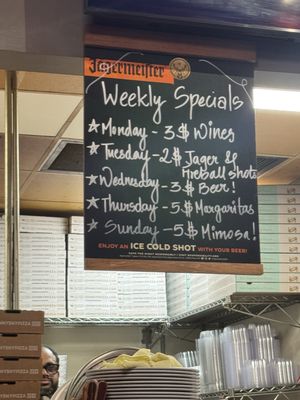 Jägermeister
Weekly Specials
★ Monday - 3$ Wines
★ Tuesday - 2$ Jager &
Fireball shots
★ Wednesday - 3$ Beer!
★ Thursday - 5$ Margaritas
★ Sunday - 5$ Mimosa!
ENJOY AN ICE COLD SHOT WITH YOUR BEER!